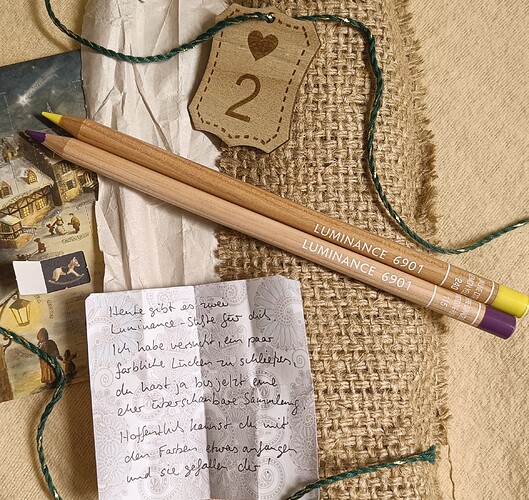 2
LUMINANCE 6901
LUMINANCE 6901
Heute gibt es zwei
Luminance-Stifte für dich.
Ich habe versucht, ein paar
farbliche Lücken zu schließen,
du hast ja bis jetzt eine
eher überschaubare Sammlung.
Hoffentlich kannst du mit
den Farben etwas anfangen
und sie gefallen dir!